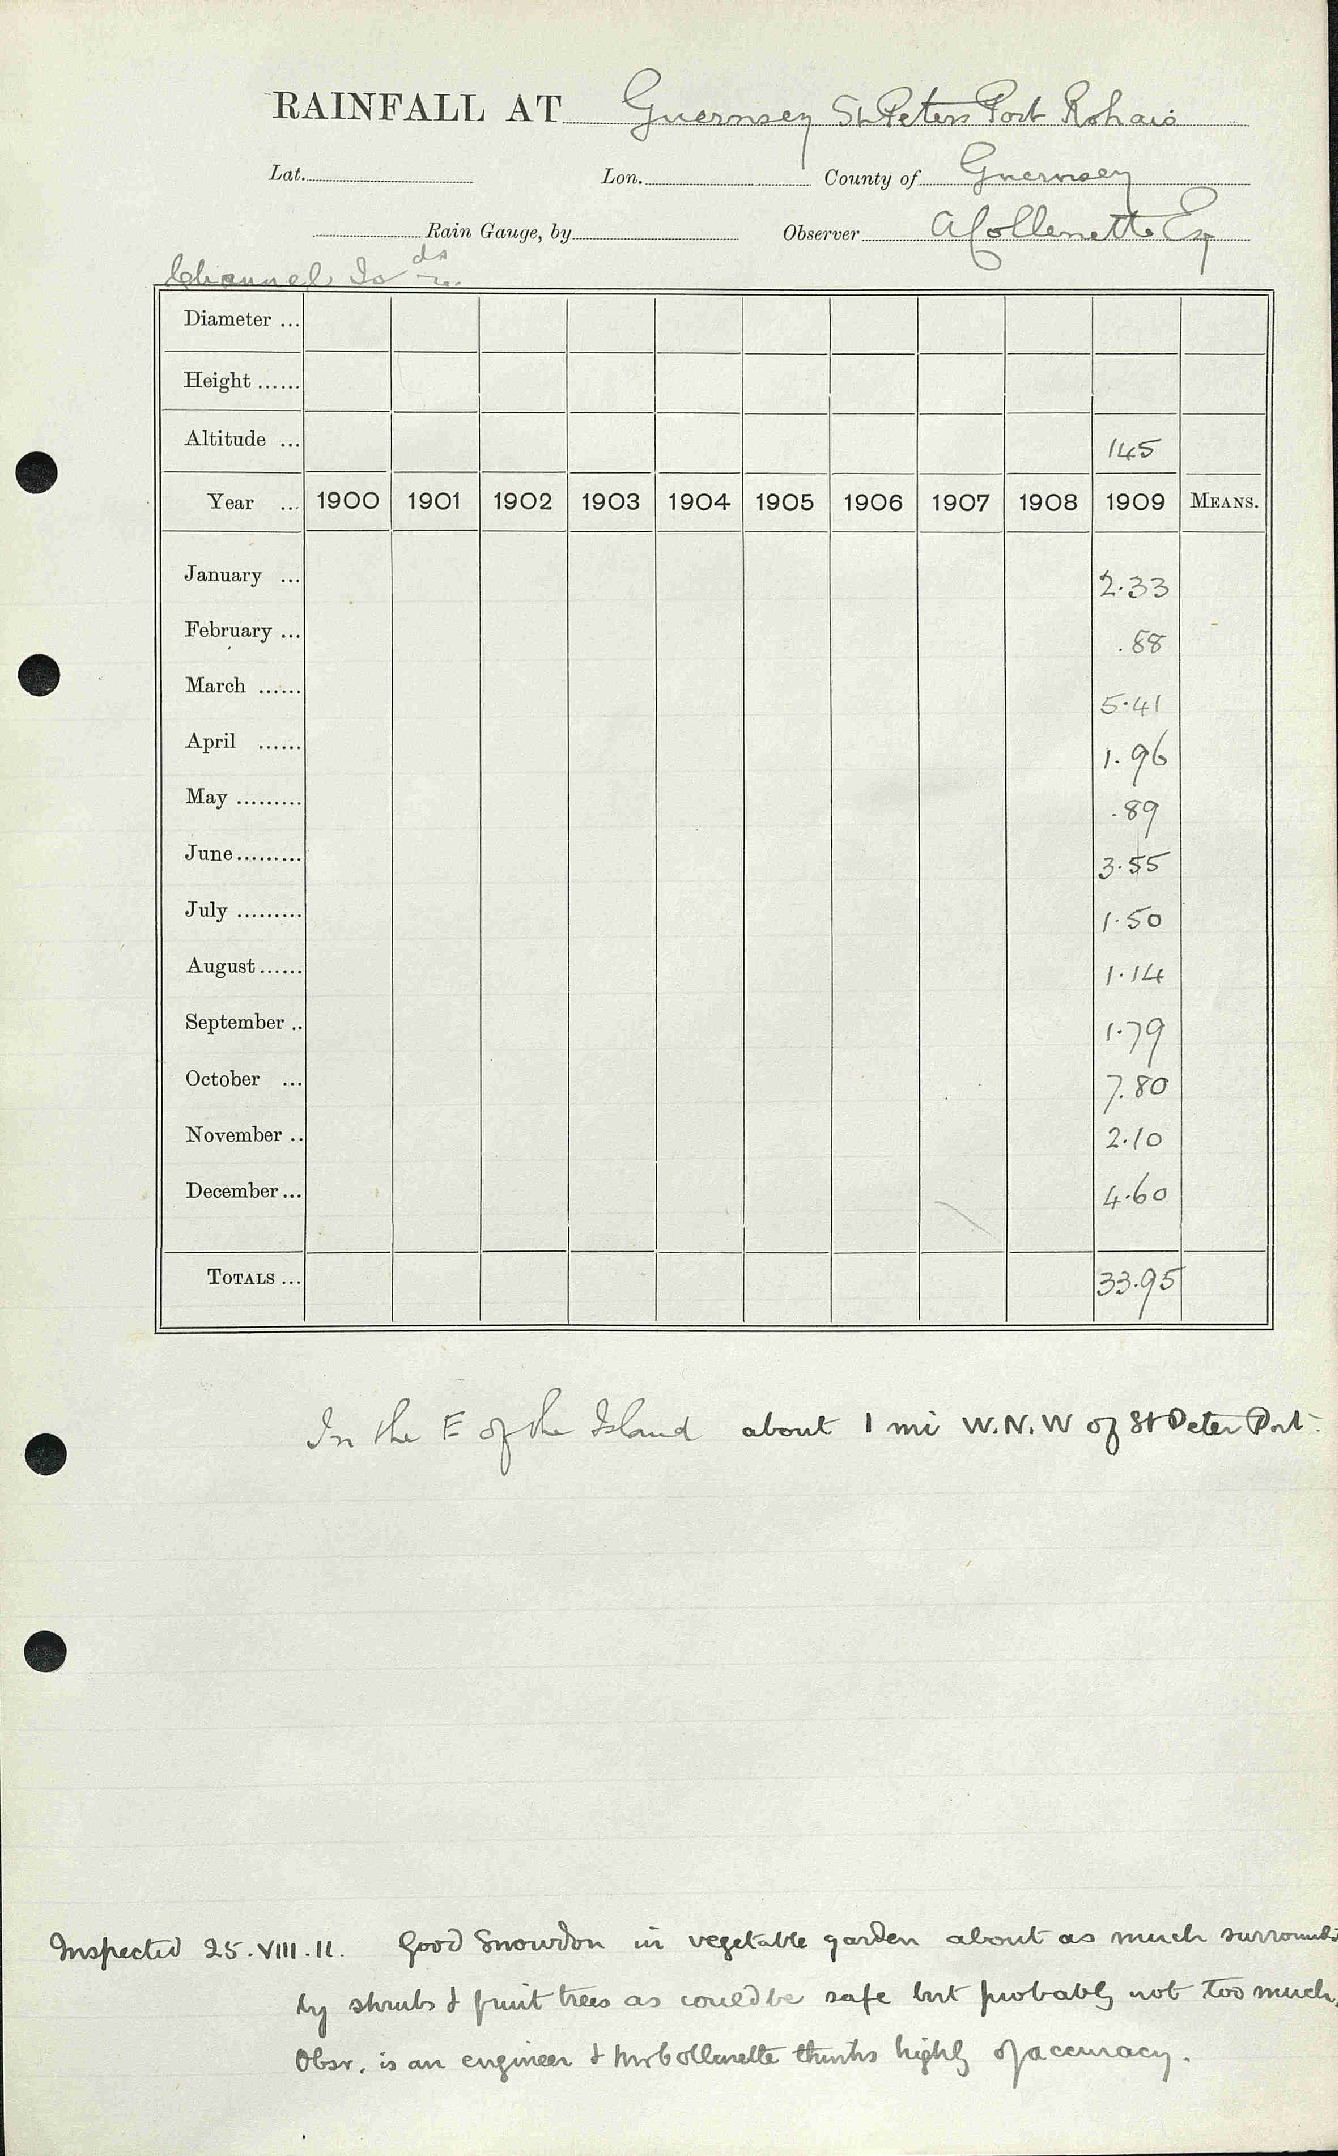 RAINFALL AT Guernsey St Peters Port Rohais
Lat. Lon. County of Guernsey
Rain Gauge, by Observer A Collenette Esq
Channel Is ds
Diameter ...
Height ......
Altitude ... 145
Year ... 1900 1901 1902 1903 1904 1905 1906 1907 1908 1909 MEANS.
January ... 2.33
February ... .88
March ...... 5.41
April ...... 1.96
May ......... .89
June ......... 3.55
July ......... 1.50
August ...... 1.14
September .. 1.79
October ... 7.80
November .. 2.10
December ... 4.60
TOTALS ... 33.95
In the E of the Island about 1 mi W.N.W of St Peter Port.
Inspected 25.VIII.11. Good Snowdon in vegetable garden about as much surrounded
by shrubs & fruit trees as could be safe but probably not too much,
Obsr. is an engineer & Mr Collenette thinks highly of accuracy.